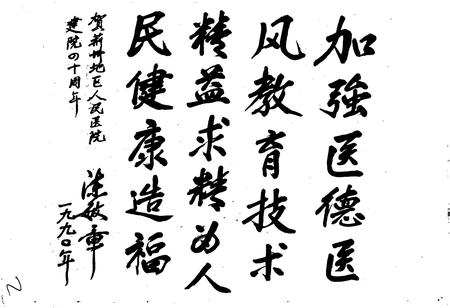 加強医德医
风教育技术
精益求精为人
民健康造福
贺忻州地区人民医院
建院四十周年
陈敏章
一九九〇年